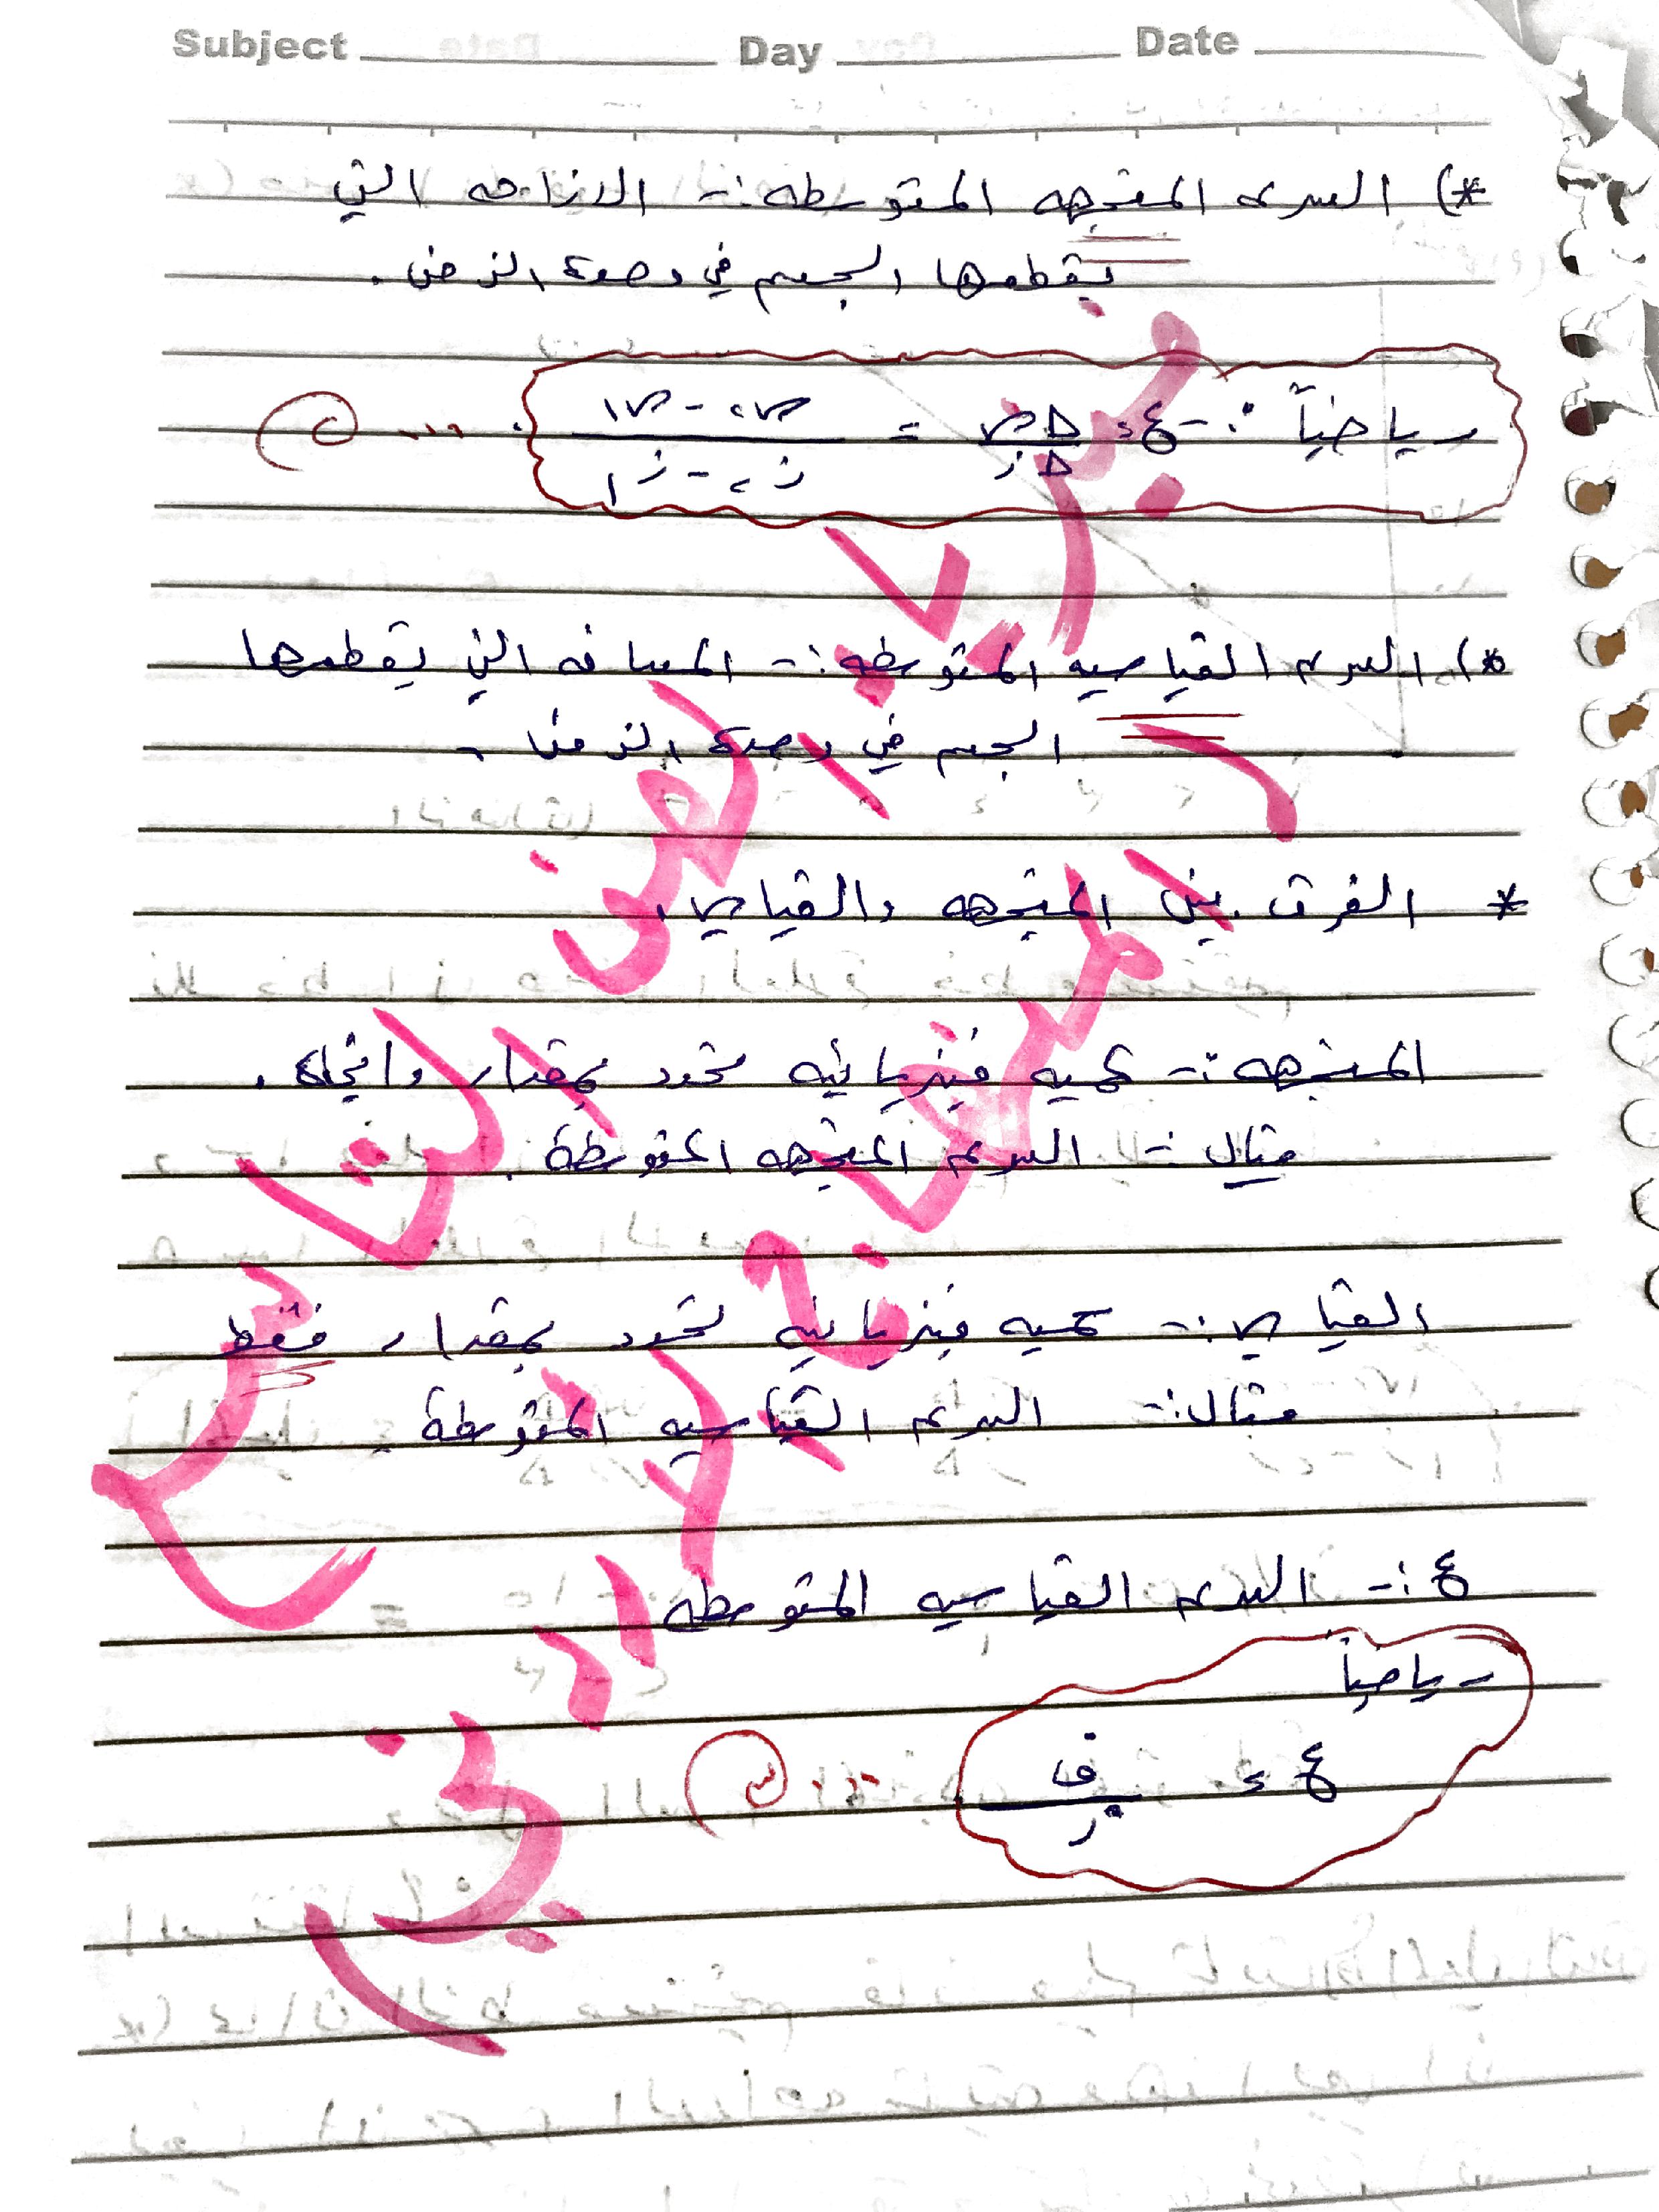 Subject Day Date
*) السرعه المتجهه المتوسطه :- الازاحه التي
يقطعها الجسم في وحدة الزمن .
رياضياً :- ع = Δس / Δز = س٢ - س١ / ز٢ - ز١ ... ٢
*) السرعه القياسيه المتوسطه :- المسافه التي يقطعها
الجسم في وحدة الزمن .
* الفرق بين المتجهه والقياس
المتجهه :- كميه فيزيائيه تحدد بمقدار واتجاه .
مثال :- السرعه المتجهه المتوسطة .
القياس :- كميه فيزيائيه تحدد بمقدار فقط
مثال :- السرعه القياسيه المتوسطة
ع :- السرعه القياسيه المتوسطه
رياضياً
ع = ف / ز ... ٣